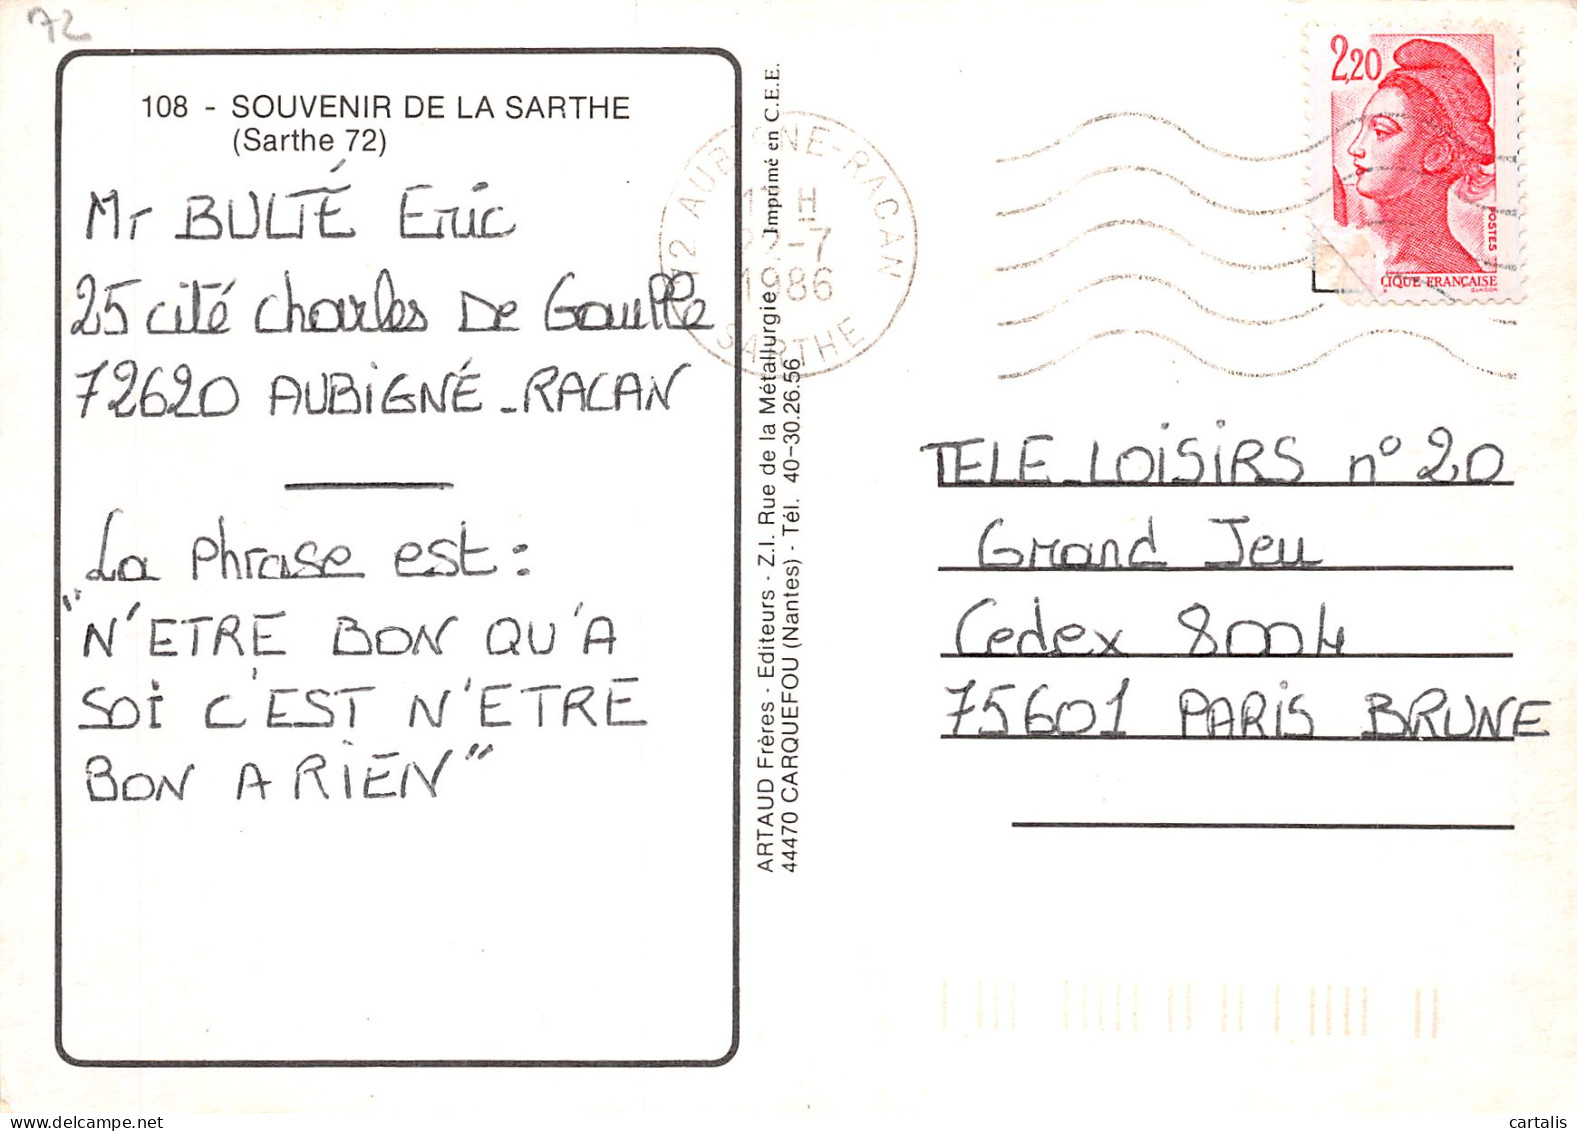 72
108 - SOUVENIR DE LA SARTHE
(Sarthe 72)
Mr BULTÉ Eric
25 cité Charles De Gaulle
72620 AUBIGNÉ-RACAN
La Phrase est :
"N'ETRE BON QU'A
SOI C'EST N'ETRE
BON A RIEN"
ARTAUD Frères - Editeurs - Z.I. Rue de la Métallurgie
44470 CARQUEFOU (Nantes) - Tél. 40-30.26.56
Imprimé en C.E.E.
72 AUBIGNE-RACAN
H
22-7
1986
SARTHE
2,20
POSTES
IQUE FRANÇAISE
GANDON
TELE-LOISIRS n° 20
Grand Jeu
Cedex 8004
75601 PARIS BRUNE
cartalis